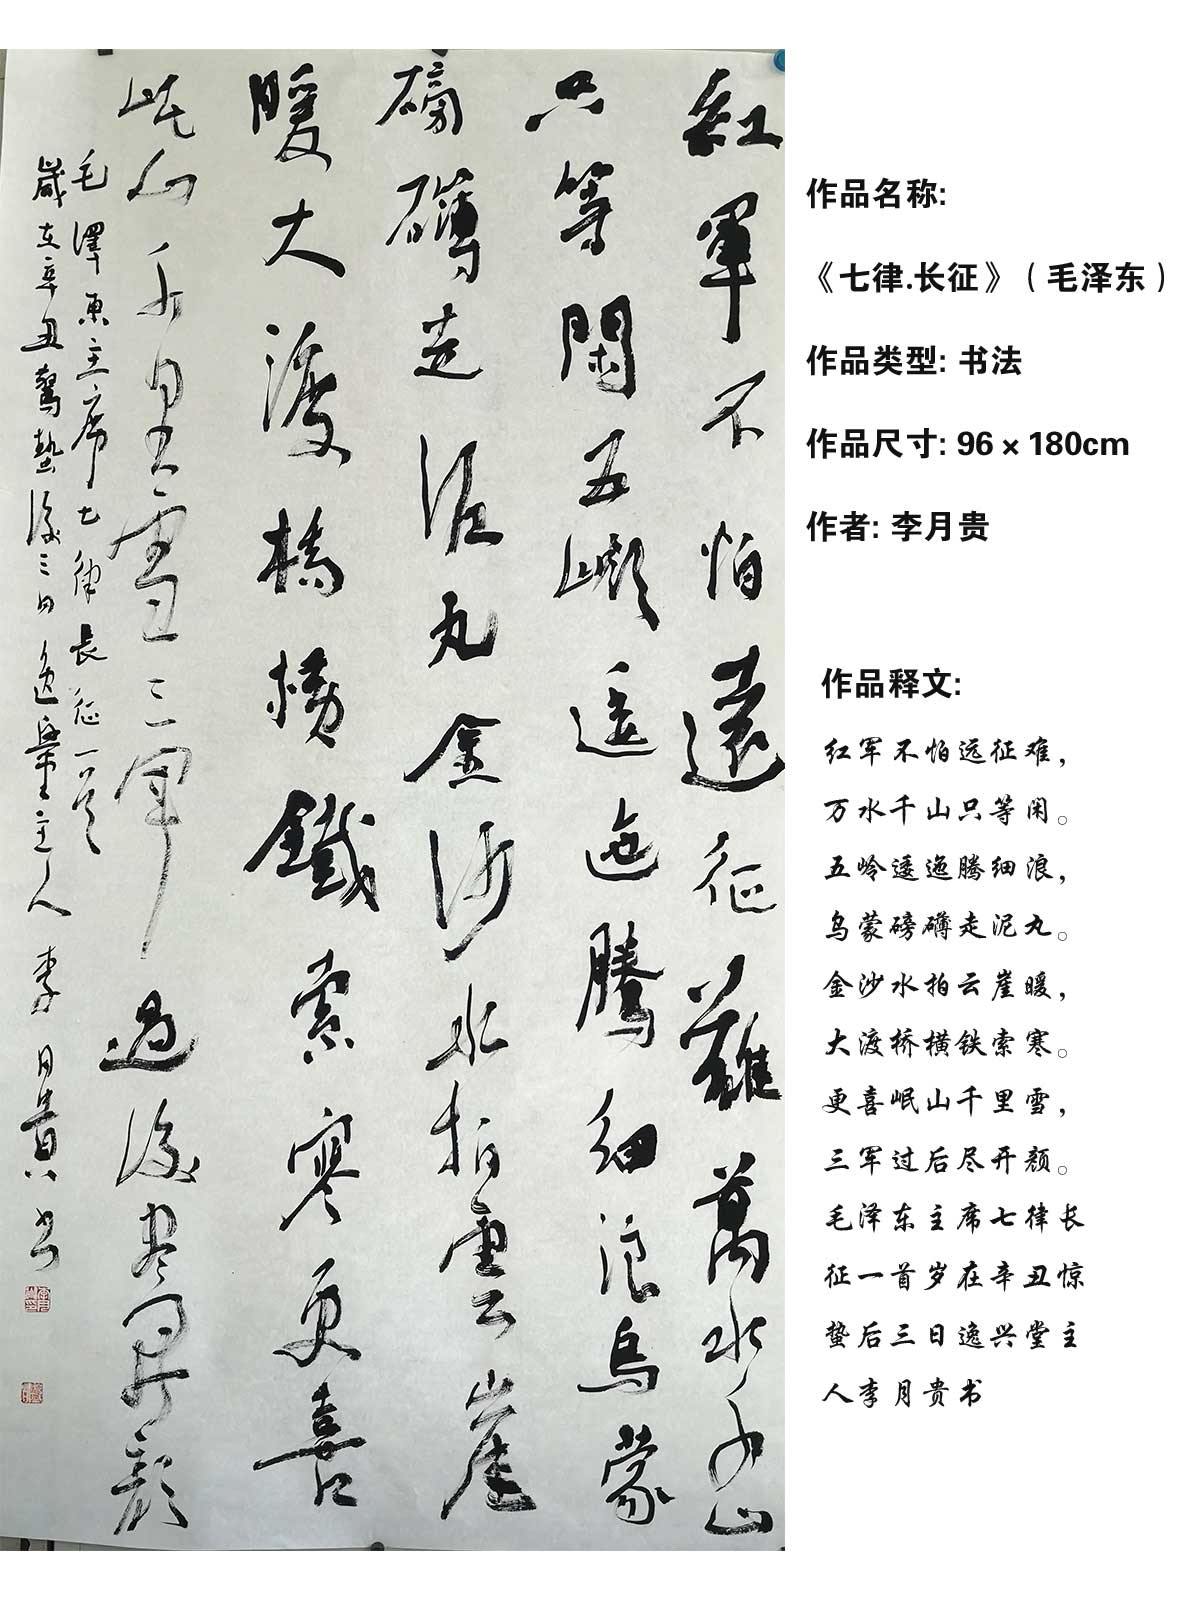 紅軍不怕遠征難萬水千山
只等閑五嶺逶迤騰細浪烏蒙
磅礴走泥丸金沙水拍雲崖
暖大渡橋橫鐵索寒更喜
岷山千里雪三軍過後盡開顏
毛澤東主席七律長征一首
歲在辛丑驚蟄後三日逸興堂主人李月貴書
作品名称:
《七律.长征》（毛泽东）
作品类型: 书法
作品尺寸: 96×180cm
作者: 李月贵
作品释文:
红军不怕远征难，
万水千山只等闲。
五岭逶迤腾细浪，
乌蒙磅礴走泥丸。
金沙水拍云崖暖，
大渡桥横铁索寒。
更喜岷山千里雪，
三军过后尽开颜。
毛泽东主席七律长
征一首岁在辛丑惊
蛰后三日逸兴堂主
人李月贵书